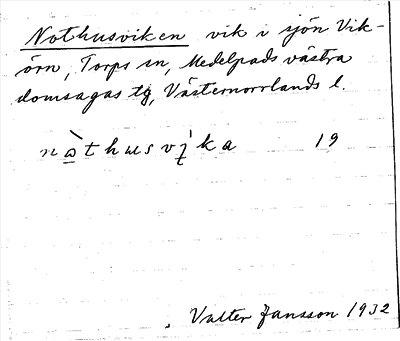 Nothusviken vik i sjön Vik-
örn, Torps sn, Medelpads västra
domsagas tg, Västernorrlands l.
nòthusvíka 19
Valter Jansson 1932